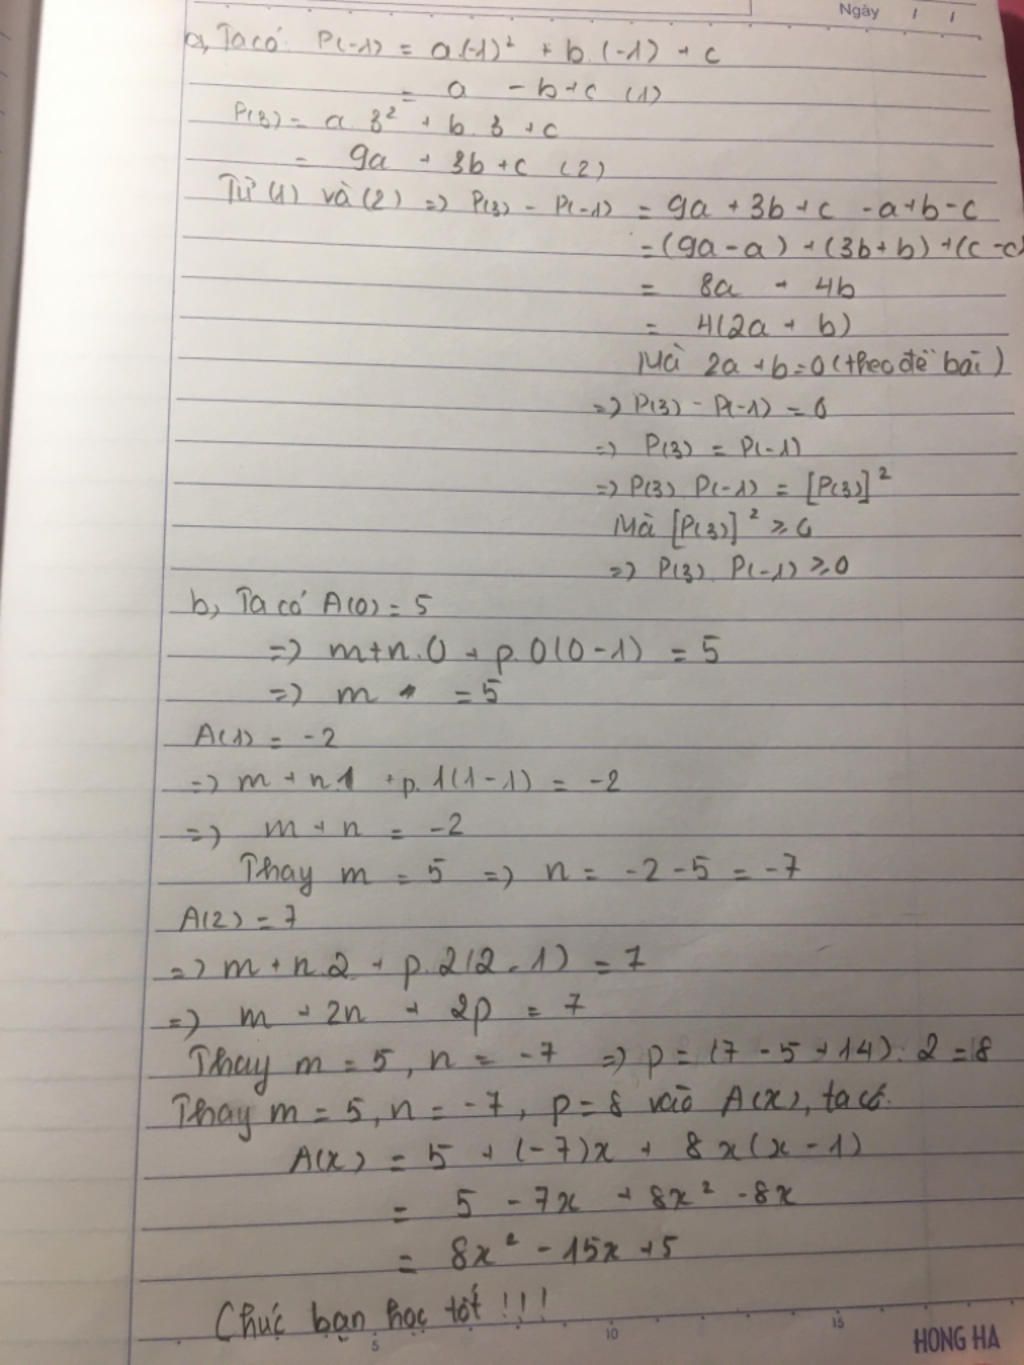 Ngày / /
a, Ta có P(-1) = a.(-1)² + b.(-1) + c
= a - b + c (1)
P(3) = a.3² + b.3 + c
= 9a + 3b + c (2)
Từ (1) và (2) => P(3) - P(-1) = 9a + 3b + c - a + b - c
= (9a - a) + (3b + b) + (c - c)
= 8a + 4b
= 4(2a + b)
Mà 2a + b = 0 (theo đề bài)
=> P(3) - P(-1) = 0
=> P(3) = P(-1)
=> P(3) P(-1) = [P(3)]²
Mà [P(3)]² ≥ 0
=> P(3). P(-1) ≥ 0
b, Ta có A(0) = 5
=> m + n.0 + p.0(0 - 1) = 5
=> m = 5
A(1) = -2
=> m + n.1 + p.1(1 - 1) = -2
=> m + n = -2
Thay m = 5 => n = -2 - 5 = -7
A(2) = 7
=> m + n.2 + p.2(2 - 1) = 7
=> m + 2n + 2p = 7
Thay m = 5, n = -7 => p = (7 - 5 + 14) : 2 = 8
Thay m = 5, n = -7, p = 8 vào A(x), ta có.
A(x) = 5 + (-7)x + 8x(x - 1)
= 5 - 7x + 8x² - 8x
= 8x² - 15x + 5
Chúc bạn học tốt !!!
5 10 15 HONG HA